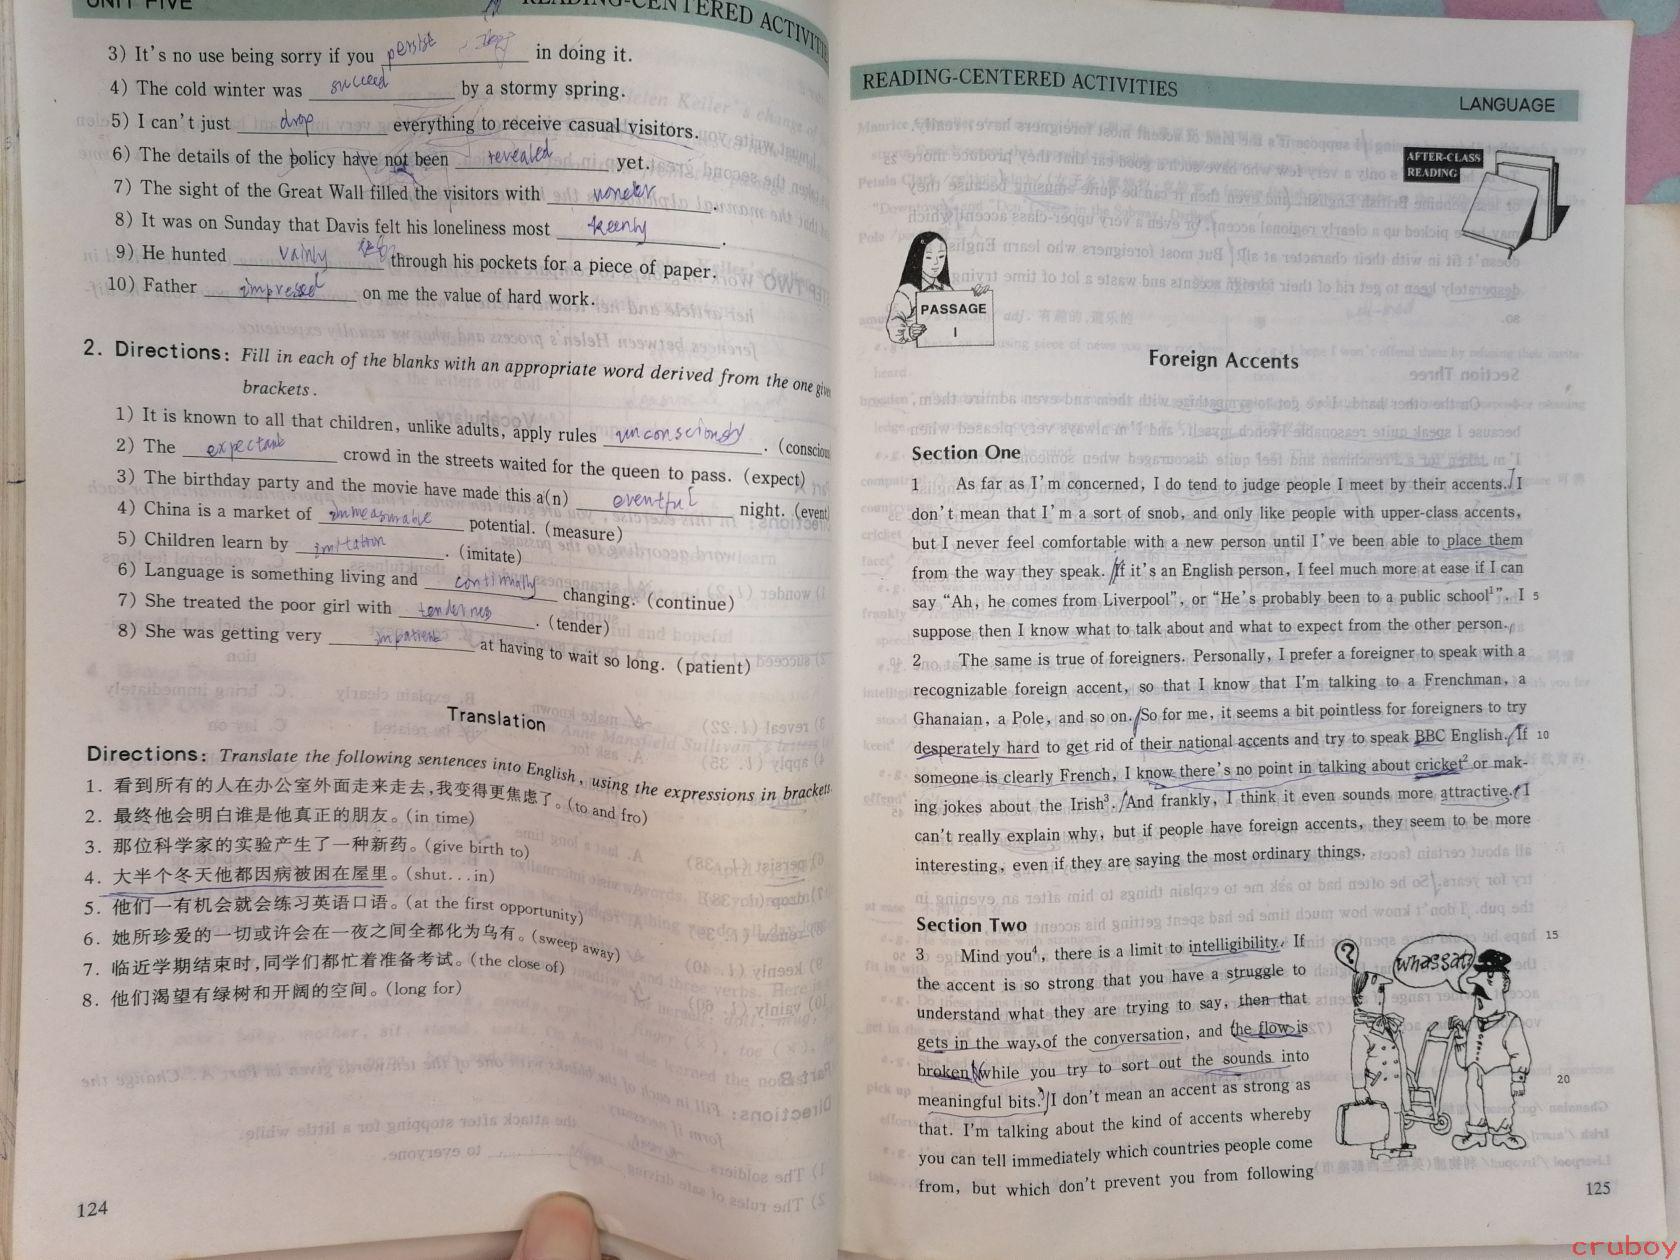 UNIT FIVE
READING-CENTERED ACTIVITIES
3) It's no use being sorry if you persist in doing it.
4) The cold winter was succeed by a stormy spring.
5) I can't just drop everything to receive casual visitors.
6) The details of the policy have not been revealed yet.
7) The sight of the Great Wall filled the visitors with wonder.
8) It was on Sunday that Davis felt his loneliness most keenly.
9) He hunted vainly through his pockets for a piece of paper.
10) Father impressed on me the value of hard work.
2. Directions: Fill in each of the blanks with an appropriate word derived from the one given
brackets.
1) It is known to all that children, unlike adults, apply rules unconsciously. (conscious
2) The expectant crowd in the streets waited for the queen to pass. (expect)
3) The birthday party and the movie have made this a(n) eventful night. (event)
4) China is a market of immeasurable potential. (measure)
5) Children learn by imitation. (imitate)
6) Language is something living and continually changing. (continue)
7) She treated the poor girl with tenderness. (tender)
8) She was getting very impatient at having to wait so long. (patient)
Translation
Directions: Translate the following sentences into English, using the expressions in brackets.
1. 看到所有的人在办公室外面走来走去,我变得更焦虑了。(to and fro)
2. 最终他会明白谁是他真正的朋友。(in time)
3. 那位科学家的实验产生了一种新药。(give birth to)
4. 大半个冬天他都因病被困在屋里。(shut...in)
5. 他们一有机会就会练习英语口语。(at the first opportunity)
6. 她所珍爱的一切或许会在一夜之间全都化为乌有。(sweep away)
7. 临近学期结束时,同学们都忙着准备考试。(the close of)
8. 他们渴望有绿树和开阔的空间。(long for)
124
READING-CENTERED ACTIVITIES
LANGUAGE
AFTER-CLASS
READING
PASSAGE
I
Foreign Accents
Section One
1 As far as I'm concerned, I do tend to judge people I meet by their accents. I
don't mean that I'm a sort of snob, and only like people with upper-class accents,
but I never feel comfortable with a new person until I've been able to place them
from the way they speak. If it's an English person, I feel much more at ease if I can
say "Ah, he comes from Liverpool", or "He's probably been to a public school¹". I 5
suppose then I know what to talk about and what to expect from the other person.
2 The same is true of foreigners. Personally, I prefer a foreigner to speak with a
recognizable foreign accent, so that I know that I'm talking to a Frenchman, a
Ghanaian, a Pole, and so on. So for me, it seems a bit pointless for foreigners to try
desperately hard to get rid of their national accents and try to speak BBC English. If 10
someone is clearly French, I know there's no point in talking about cricket² or mak-
ing jokes about the Irish³. And frankly, I think it even sounds more attractive. I
can't really explain why, but if people have foreign accents, they seem to be more
interesting, even if they are saying the most ordinary things.
Section Two
15
3 Mind you⁴, there is a limit to intelligibility. If
the accent is so strong that you have a struggle to
understand what they are trying to say, then that
gets in the way of the conversation, and the flow is
broken while you try to sort out the sounds into
meaningful bits. I don't mean an accent as strong as
that. I'm talking about the kind of accents whereby
you can tell immediately which countries people come
from, but which don't prevent you from following
?
Whassat?
20
125
cruboy